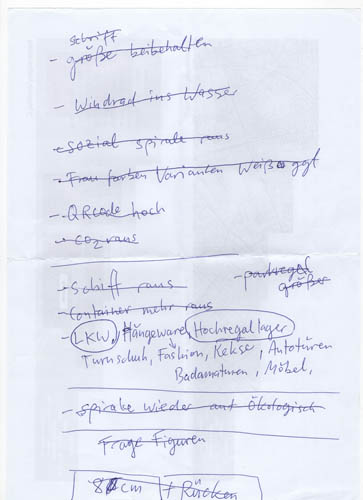 schrift
- größe beibehalten
- Windrad ins Wasser
- sozial spirale raus
- Frau farben Varianten Weiß ggf
- QRcode hoch
- CO2 raus
- Schiff raus
- parkregal größer
- Container mehr raus
- LKW, Hängeware, Hochregallager
Turnschuh, Fashion, Kekse, Autotüren
Badarmaturen, Möbel,
- spirale wieder auf Ökologisch
Frage Figuren
8 cm + Rücken